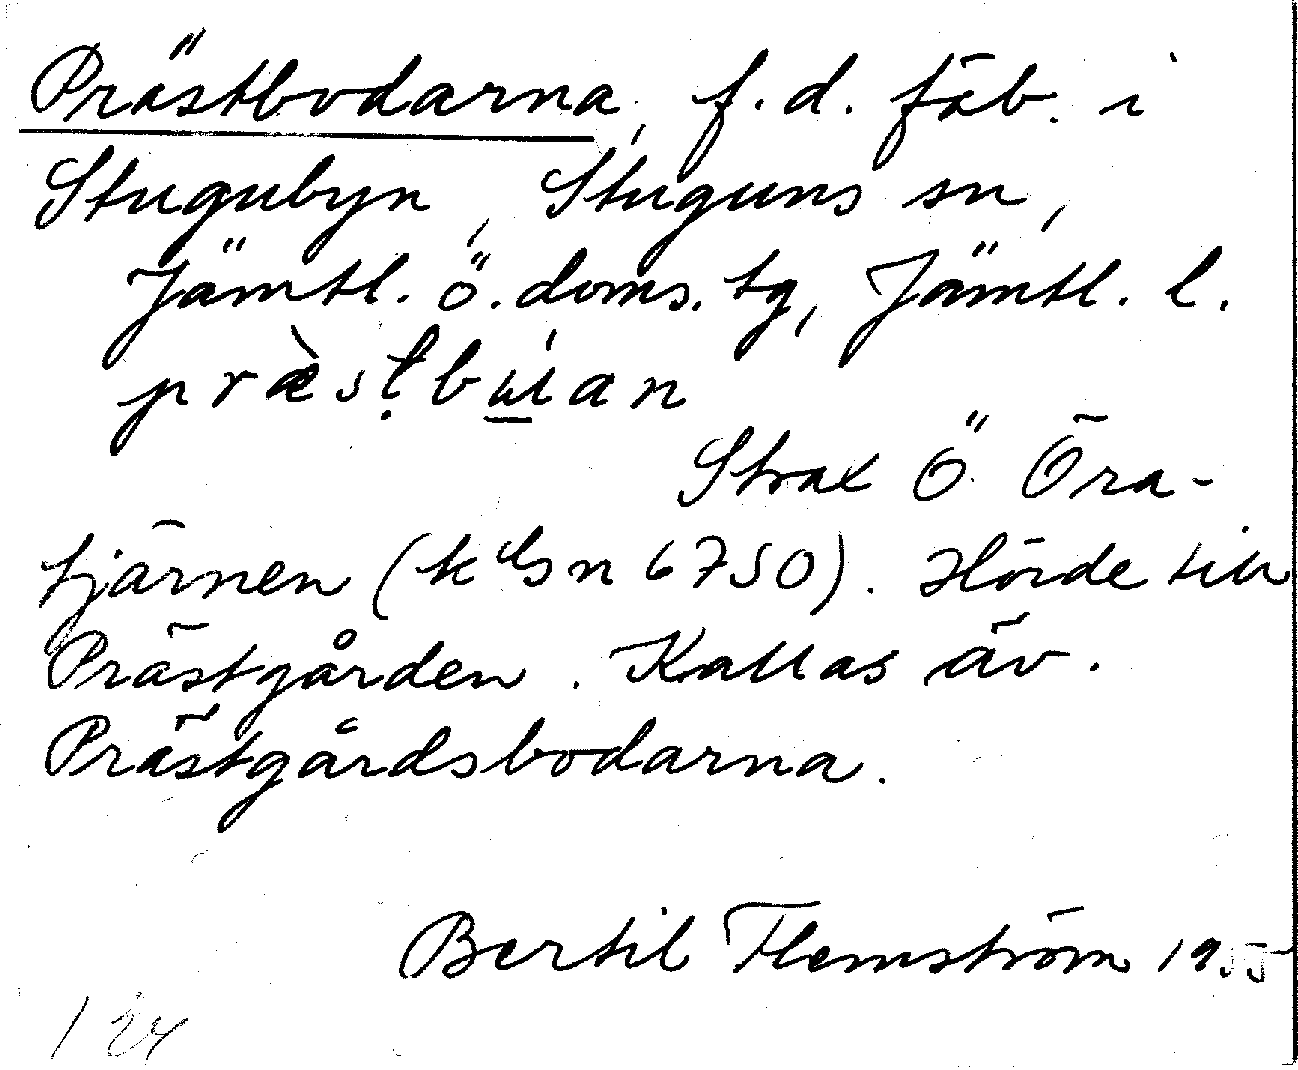 Prästbodarna, f.d. fäb. i
Stugubyn, Stuguns sn,
Jämtl. ö. doms. tg, Jämtl. l.
præ̀sṭbú̲an
Strax Ö Öra-
tjärnen (k bl sn 6750). Hörde till
Prästgården. Kallas äv.
Prästgårdsbodarna.
Bertil Flemström 1955
124